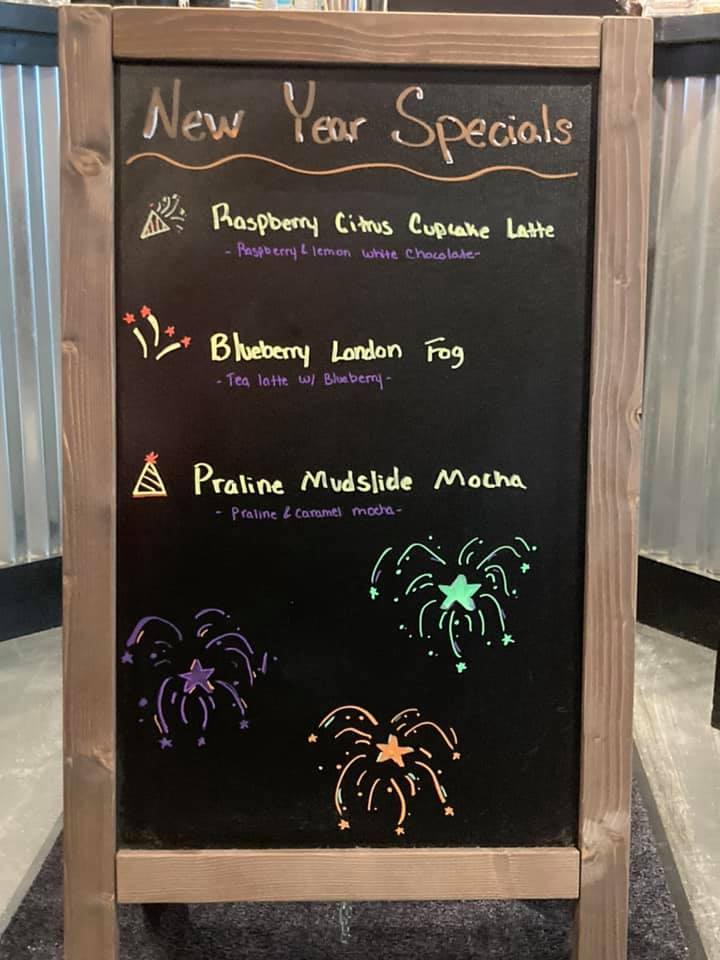 New Year Specials
Raspberry Citrus Cupcake Latte
- Raspberry & lemon white chocolate -
Blueberry London Fog
- Tea latte w/ Blueberry -
Praline Mudslide Mocha
- Praline & Caramel mocha -